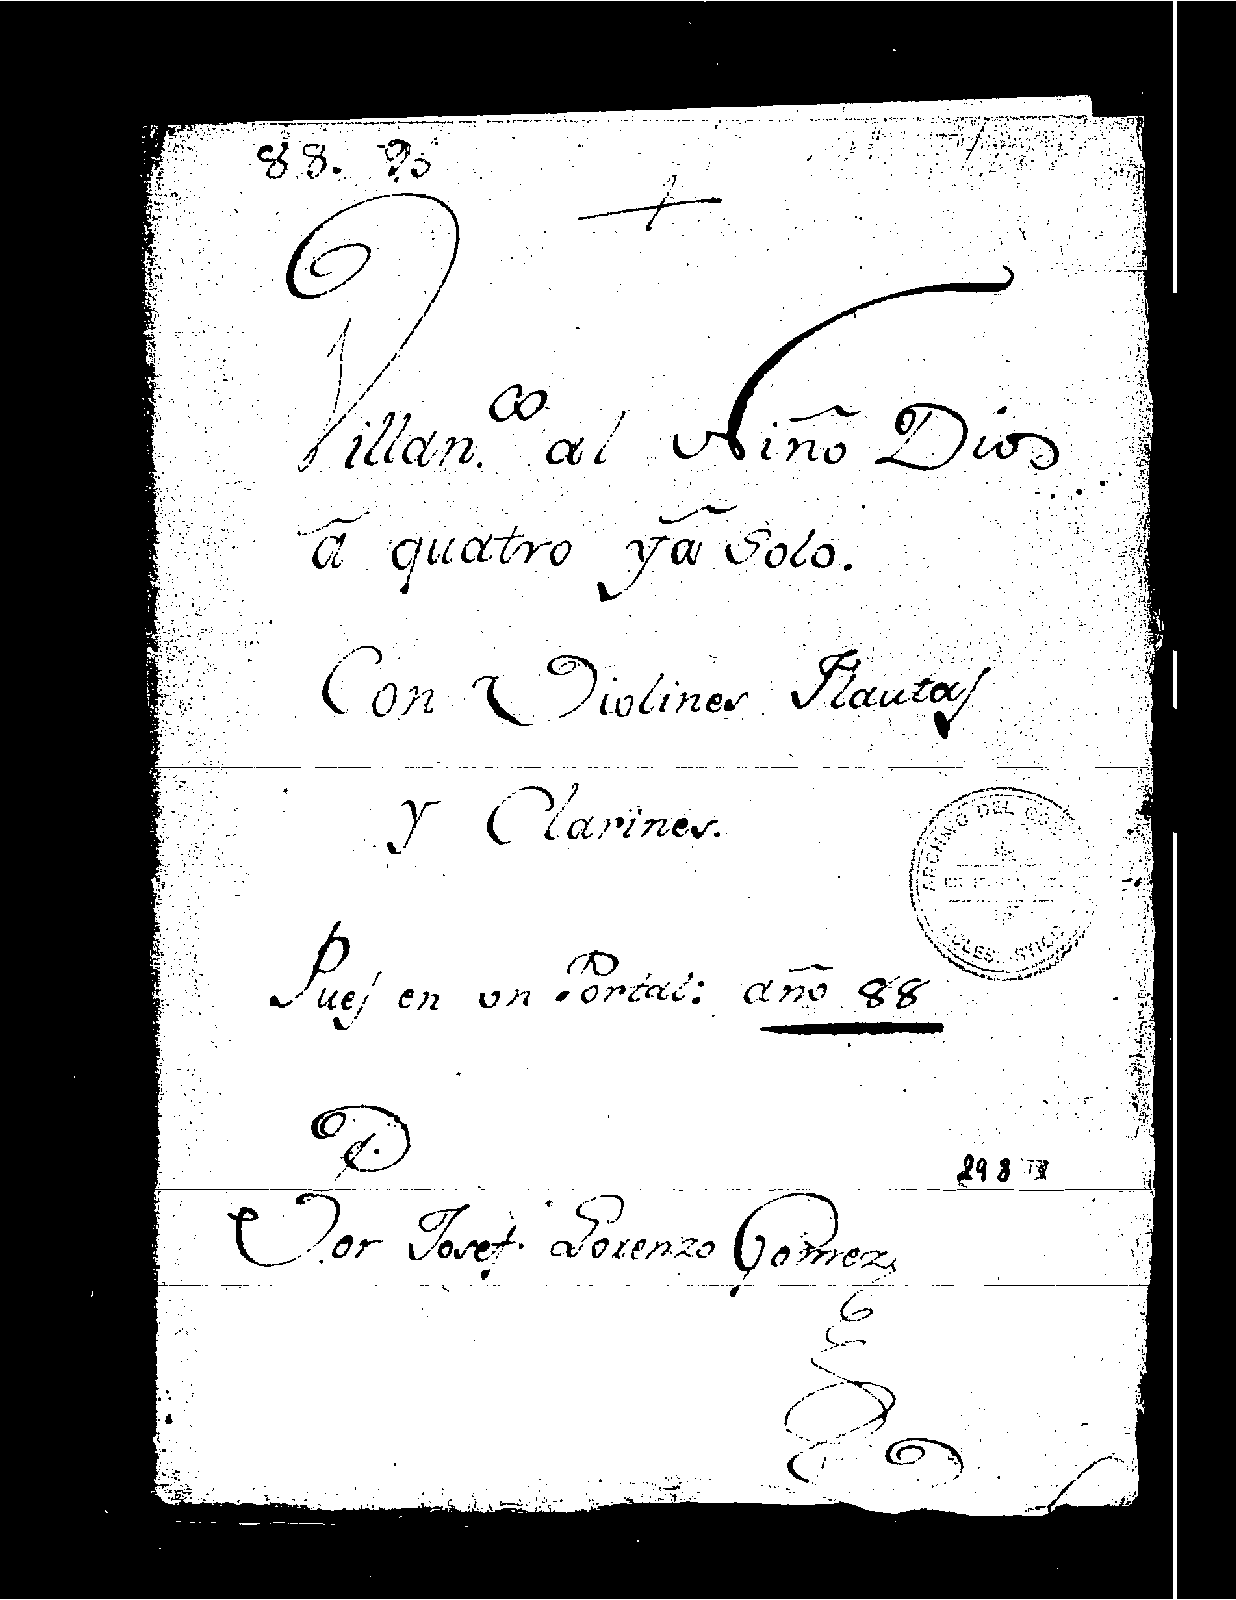 88.
Villan.co al Niño Dios
ã quatro yã Solo.
Con Violines Flautas
y Clarines.
ARCHIVO DEL
Pues en un Portal: año 88
298
Por Josef Lorenzo Gomez